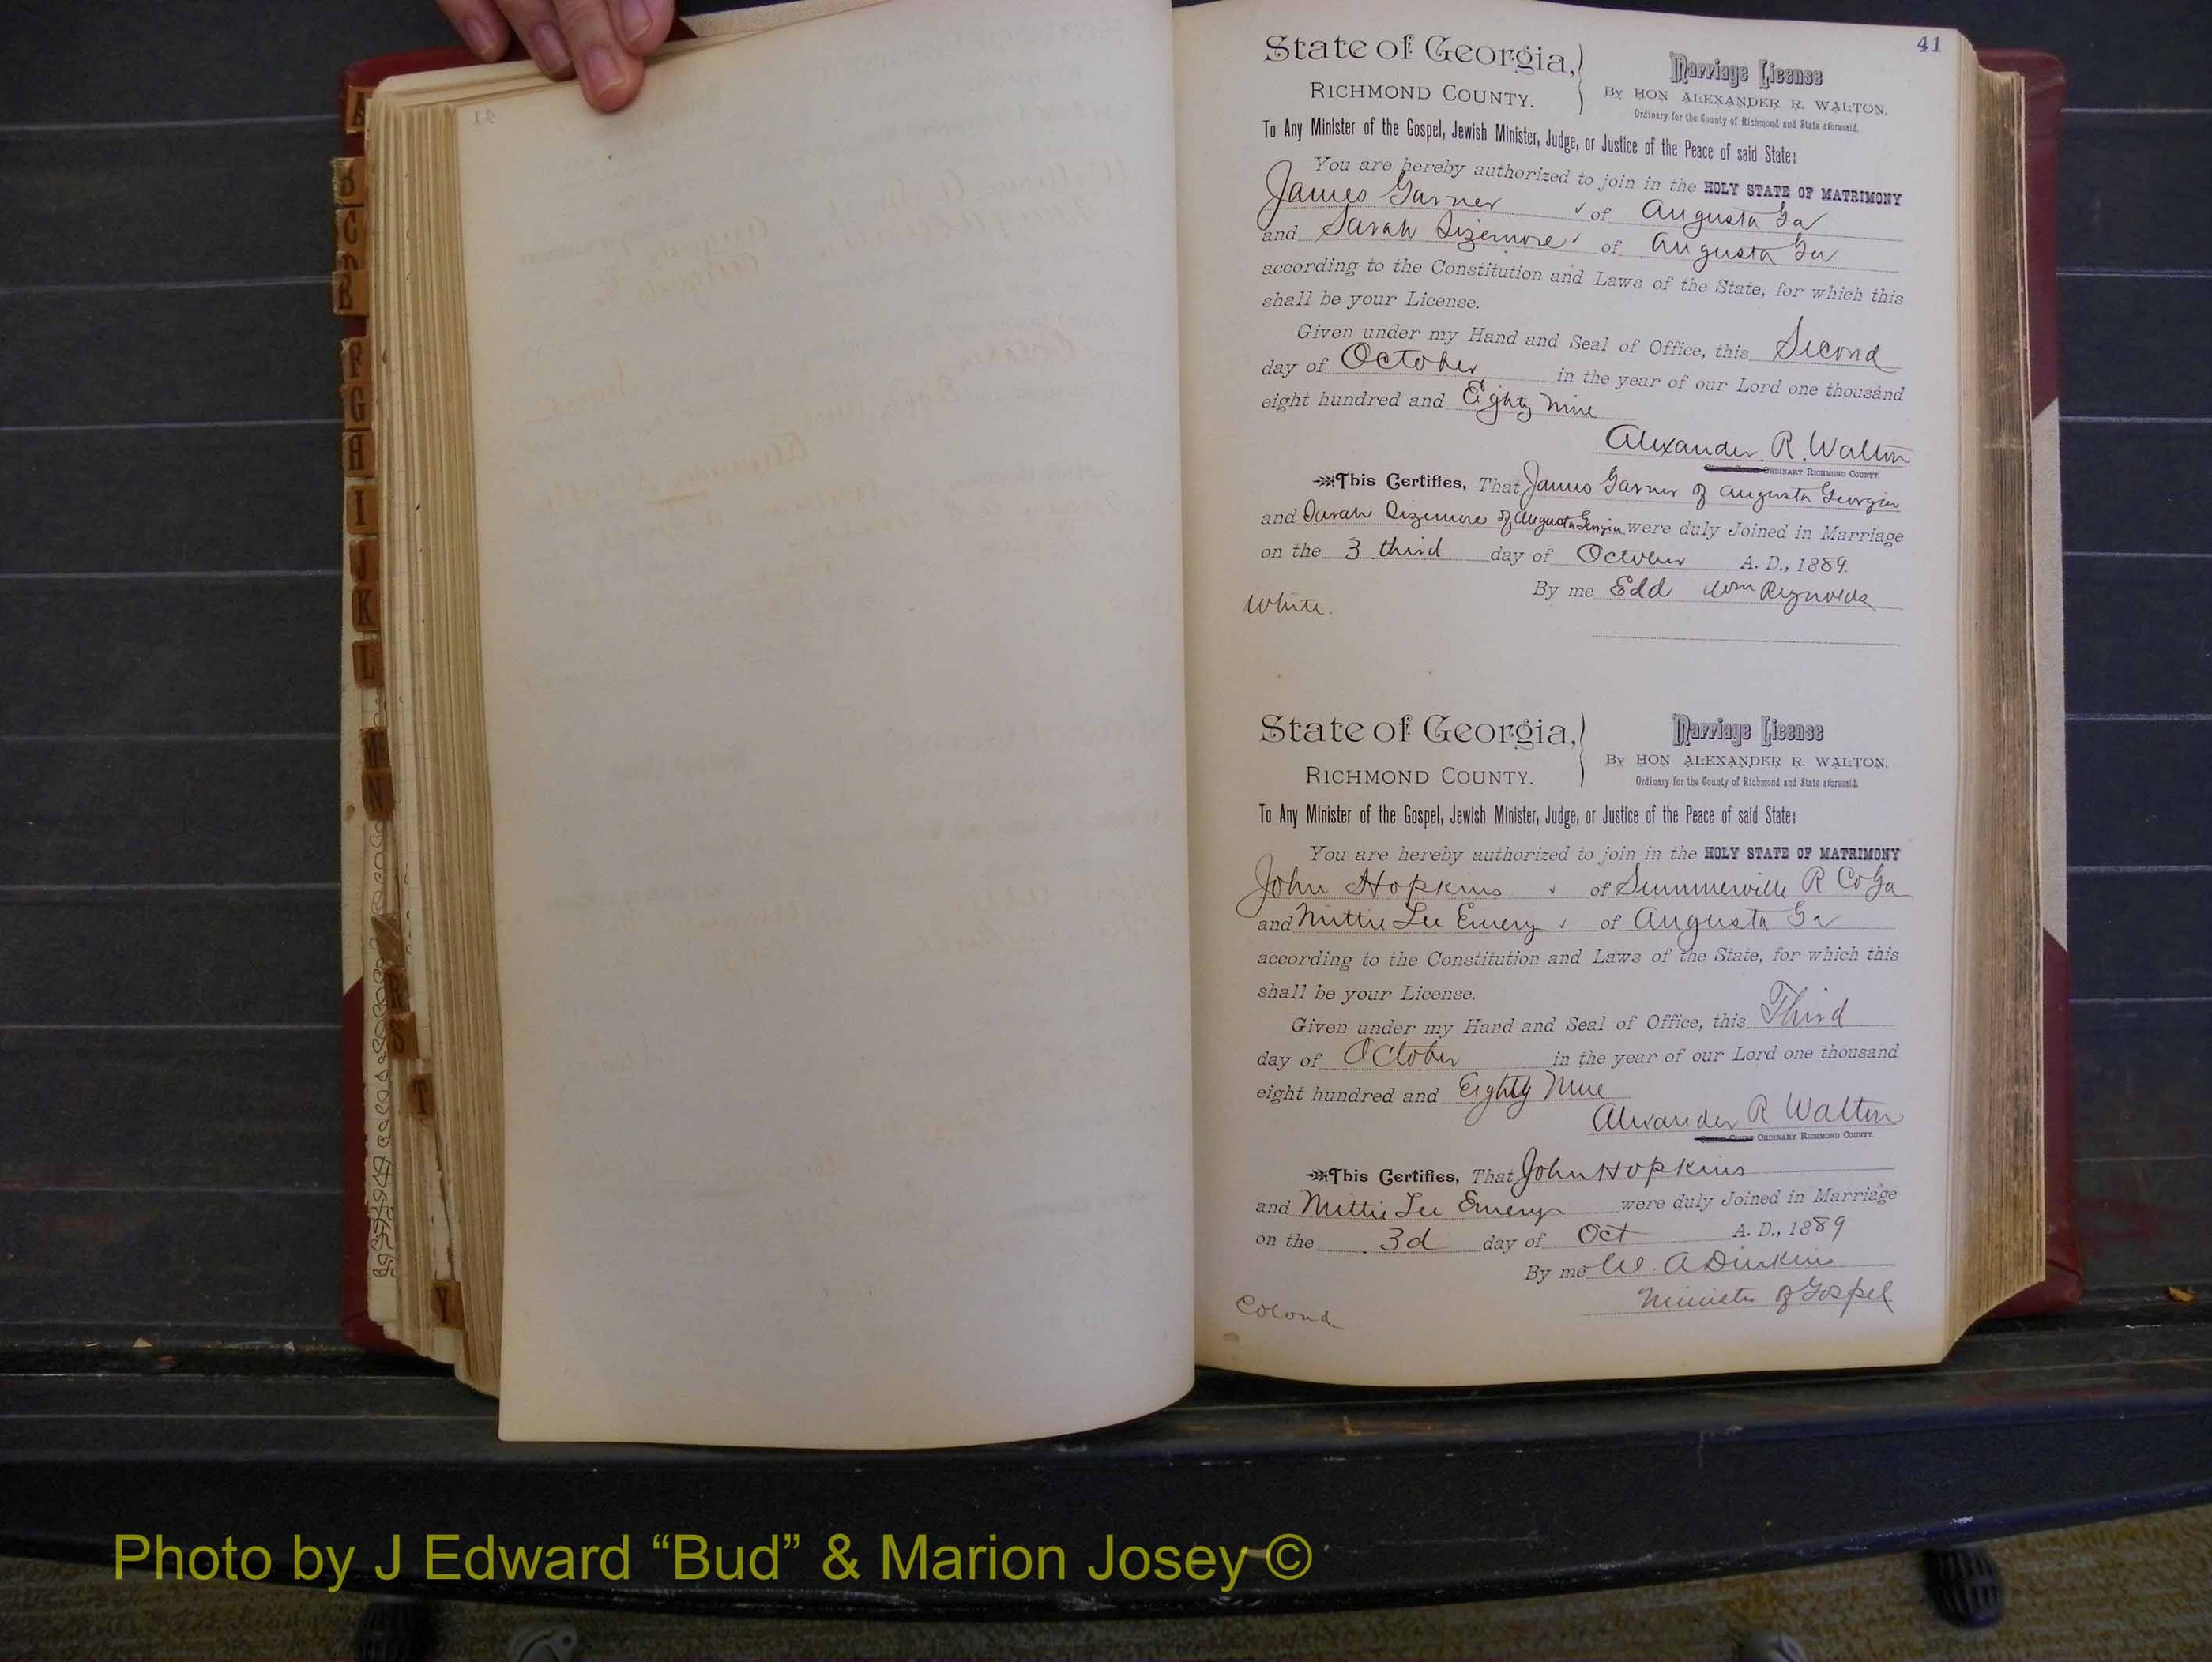 41
State of Georgia,
RICHMOND COUNTY.
Marriage License
By HON ALEXANDER R. WALTON,
Ordinary for the County of Richmond and State aforesaid.
To Any Minister of the Gospel, Jewish Minister, Judge, or Justice of the Peace of said State:
You are hereby authorized to join in the HOLY STATE OF MATRIMONY
James Garner of Augusta Ga
and Sarah Sizemore of Augusta Ga
according to the Constitution and Laws of the State, for which this
shall be your License.
Given under my Hand and Seal of Office, this Second
day of October in the year of our Lord one thousand
eight hundred and Eighty Nine
Alexander. R. Walton
ORDINARY RICHMOND COUNTY.
This Certifies, That James Garner of Augusta Georgia
and Sarah Sizemore of Augusta Georgia were duly Joined in Marriage
on the 3 third day of October A. D., 1889.
By me Edd Wm Reynolds
White.
State of Georgia,
RICHMOND COUNTY.
Marriage License
By HON ALEXANDER R. WALTON,
Ordinary for the County of Richmond and State aforesaid.
To Any Minister of the Gospel, Jewish Minister, Judge, or Justice of the Peace of said State:
You are hereby authorized to join in the HOLY STATE OF MATRIMONY
John Hopkins of Summerville R Co Ga
and Mittie Lee Emery of Augusta Ga
according to the Constitution and Laws of the State, for which this
shall be your License.
Given under my Hand and Seal of Office, this Third
day of October in the year of our Lord one thousand
eight hundred and Eighty Nine
Alexander R Walton
ORDINARY RICHMOND COUNTY.
This Certifies, That John Hopkins
and Mittie Lee Emery were duly Joined in Marriage
on the 3d day of Oct A. D., 1889
By me W. A Dinkins
Minister of Gospel
Colord
B
C
F
G
H
I
J
K
L
M
N
R
S
T
Y
Photo by J Edward “Bud” & Marion Josey ©